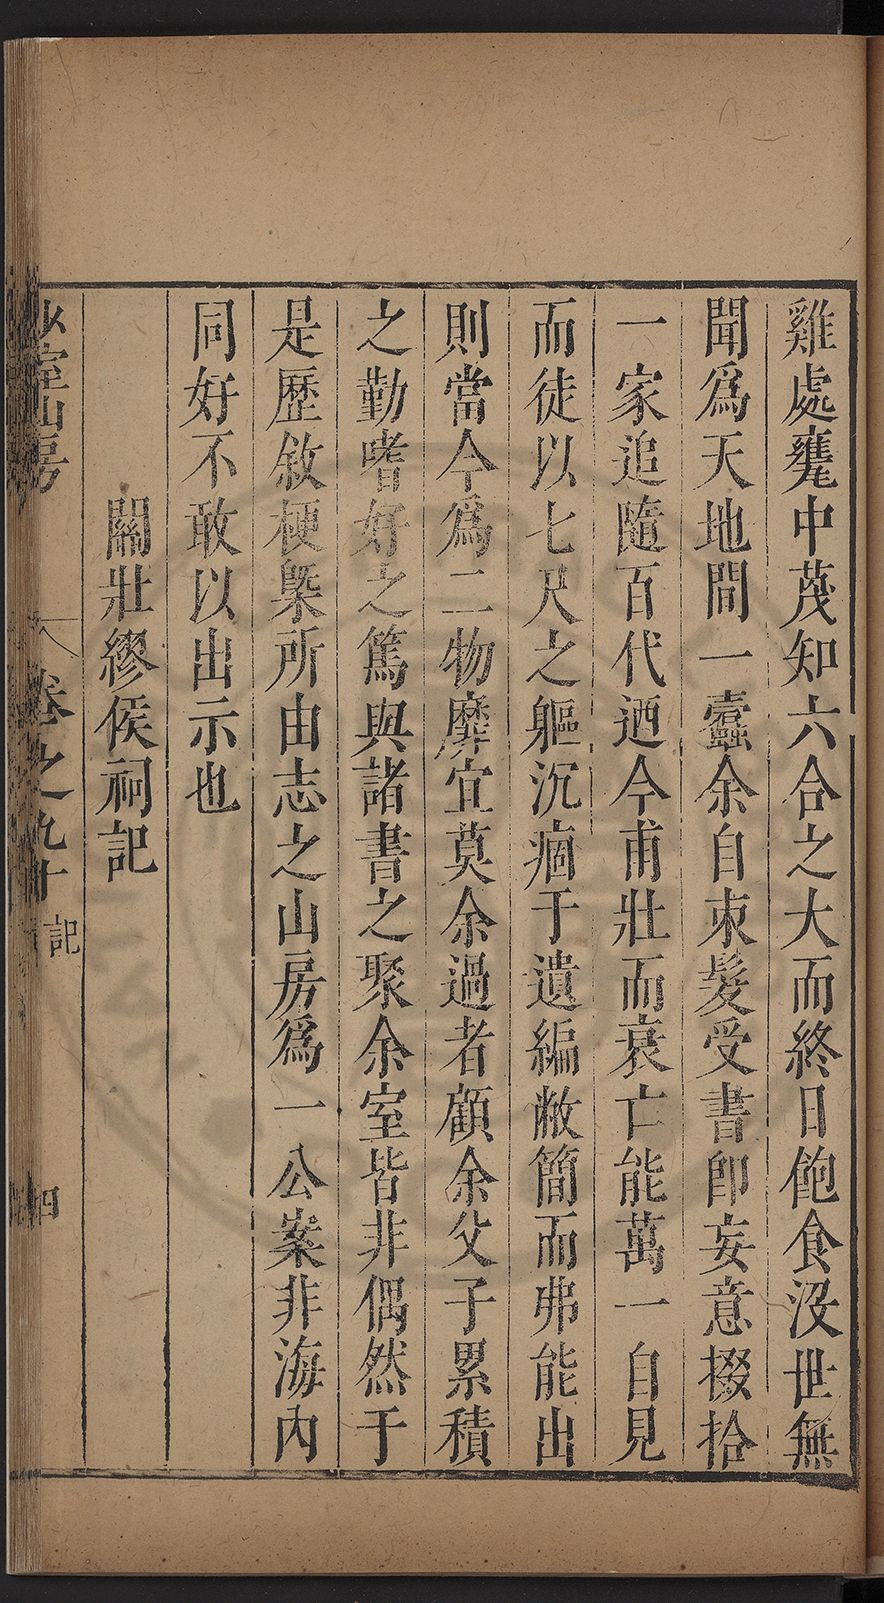 雞處甕中茂知六合之大而終日飽食沒世無
聞爲天地間一蠹余自束髮受書卽妄意掇拾
一家追隨百代迺今甫壯而衰亡能萬一自見
而徒以七尺之軀沉痼于遺編敝簡而弗能出
則當今爲二物摩宜莫余過者顧余父子累積
之勤嗜好之篤與諸書之聚余室皆非偶然于
是歷敘梗槩所由志之山房爲一公案非海內
同好不敢以出示也
關壯繆侯祠記
少室山房
卷之九十
記
四